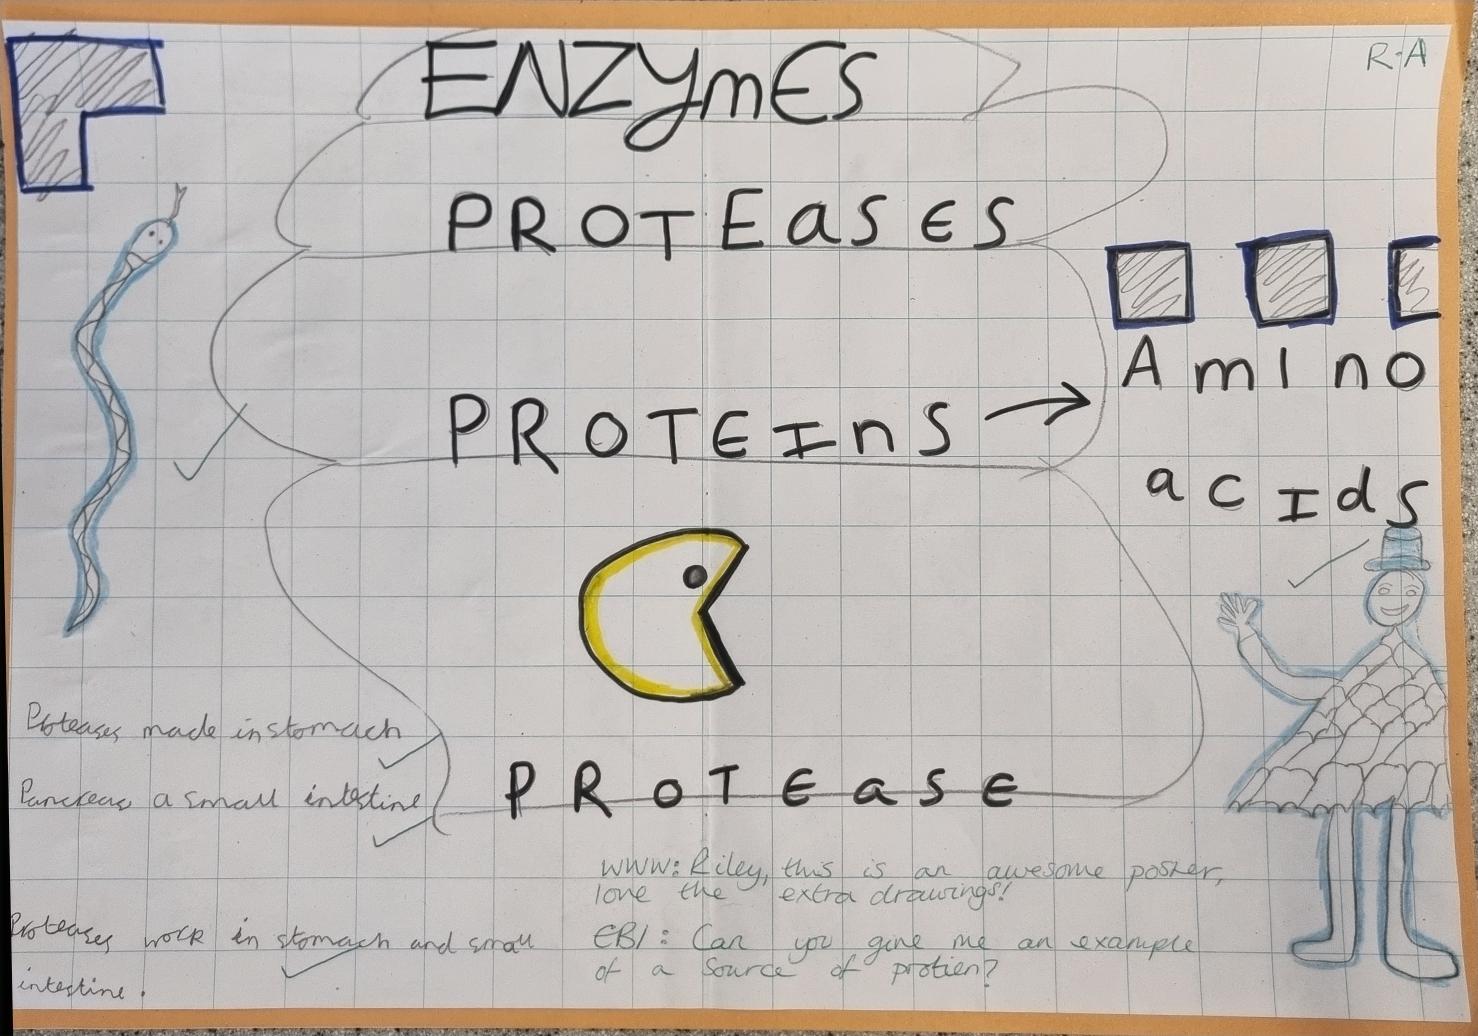 ENZYmES
R.A
PROTEaSES
PROTEInS →
AmIno
acIds
PROTEaSE
Proteases made in stomach
Pancreas a small intestine
Proteases work in stomach and small
intestine.
WWW: Riley, this is an awesome poster,
love the extra drawings!
EBI: Can you give me an example
of a source of protien?